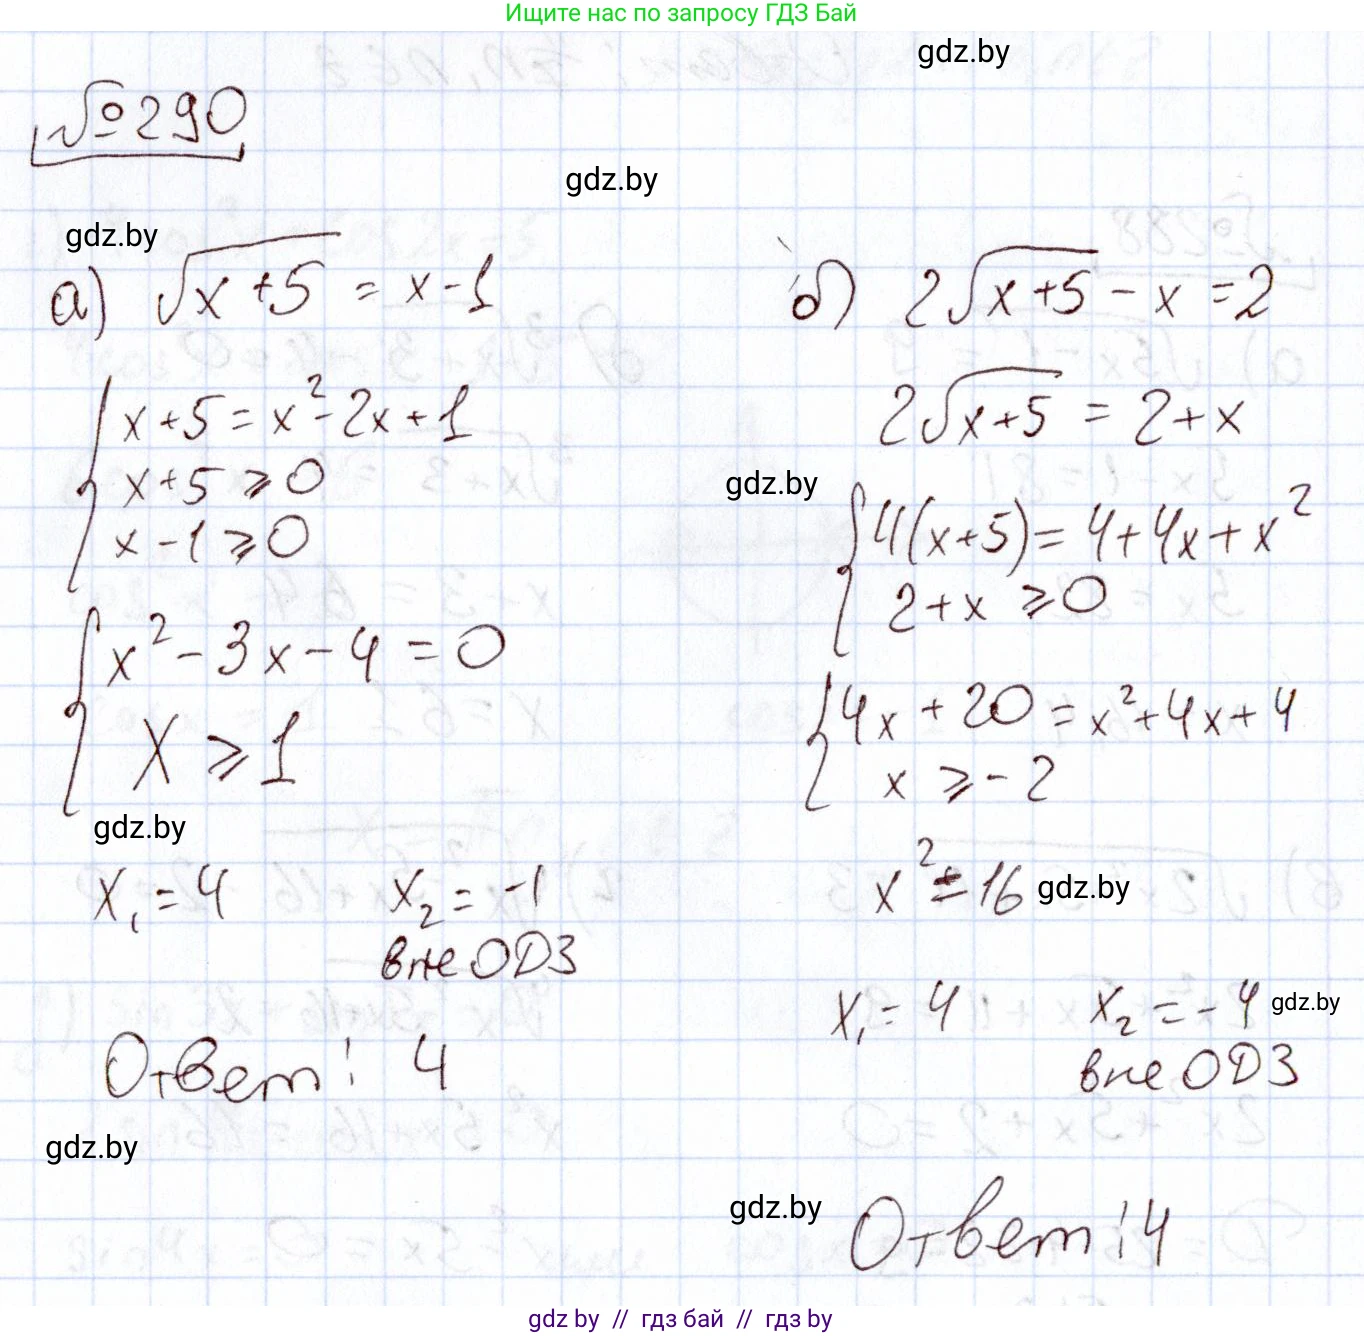 Ищите нас по запросу ГДЗ Бай
gdz.by
№290
gdz.by
gdz.by
а) √(x+5) = x-1
{ x+5 = x²-2x+1
x+5 ⩾ 0
x-1 ⩾ 0
{ x²-3x-4 = 0
x ⩾ 1
gdz.by
x₁ = 4 x₂ = -1
вне ОДЗ
Ответ: 4
gdz.by
б) 2√(x+5) - x = 2
2√(x+5) = 2+x
gdz.by
{ 4(x+5) = 4+4x+x²
2+x ⩾ 0
{ 4x+20 = x²+4x+4
x ⩾ -2
x² = 16 gdz.by
x₁ = 4 x₂ = -4 gdz.by
вне ОДЗ
gdz.by
Ответ: 4
gdz.by // гдз бай // гдз by